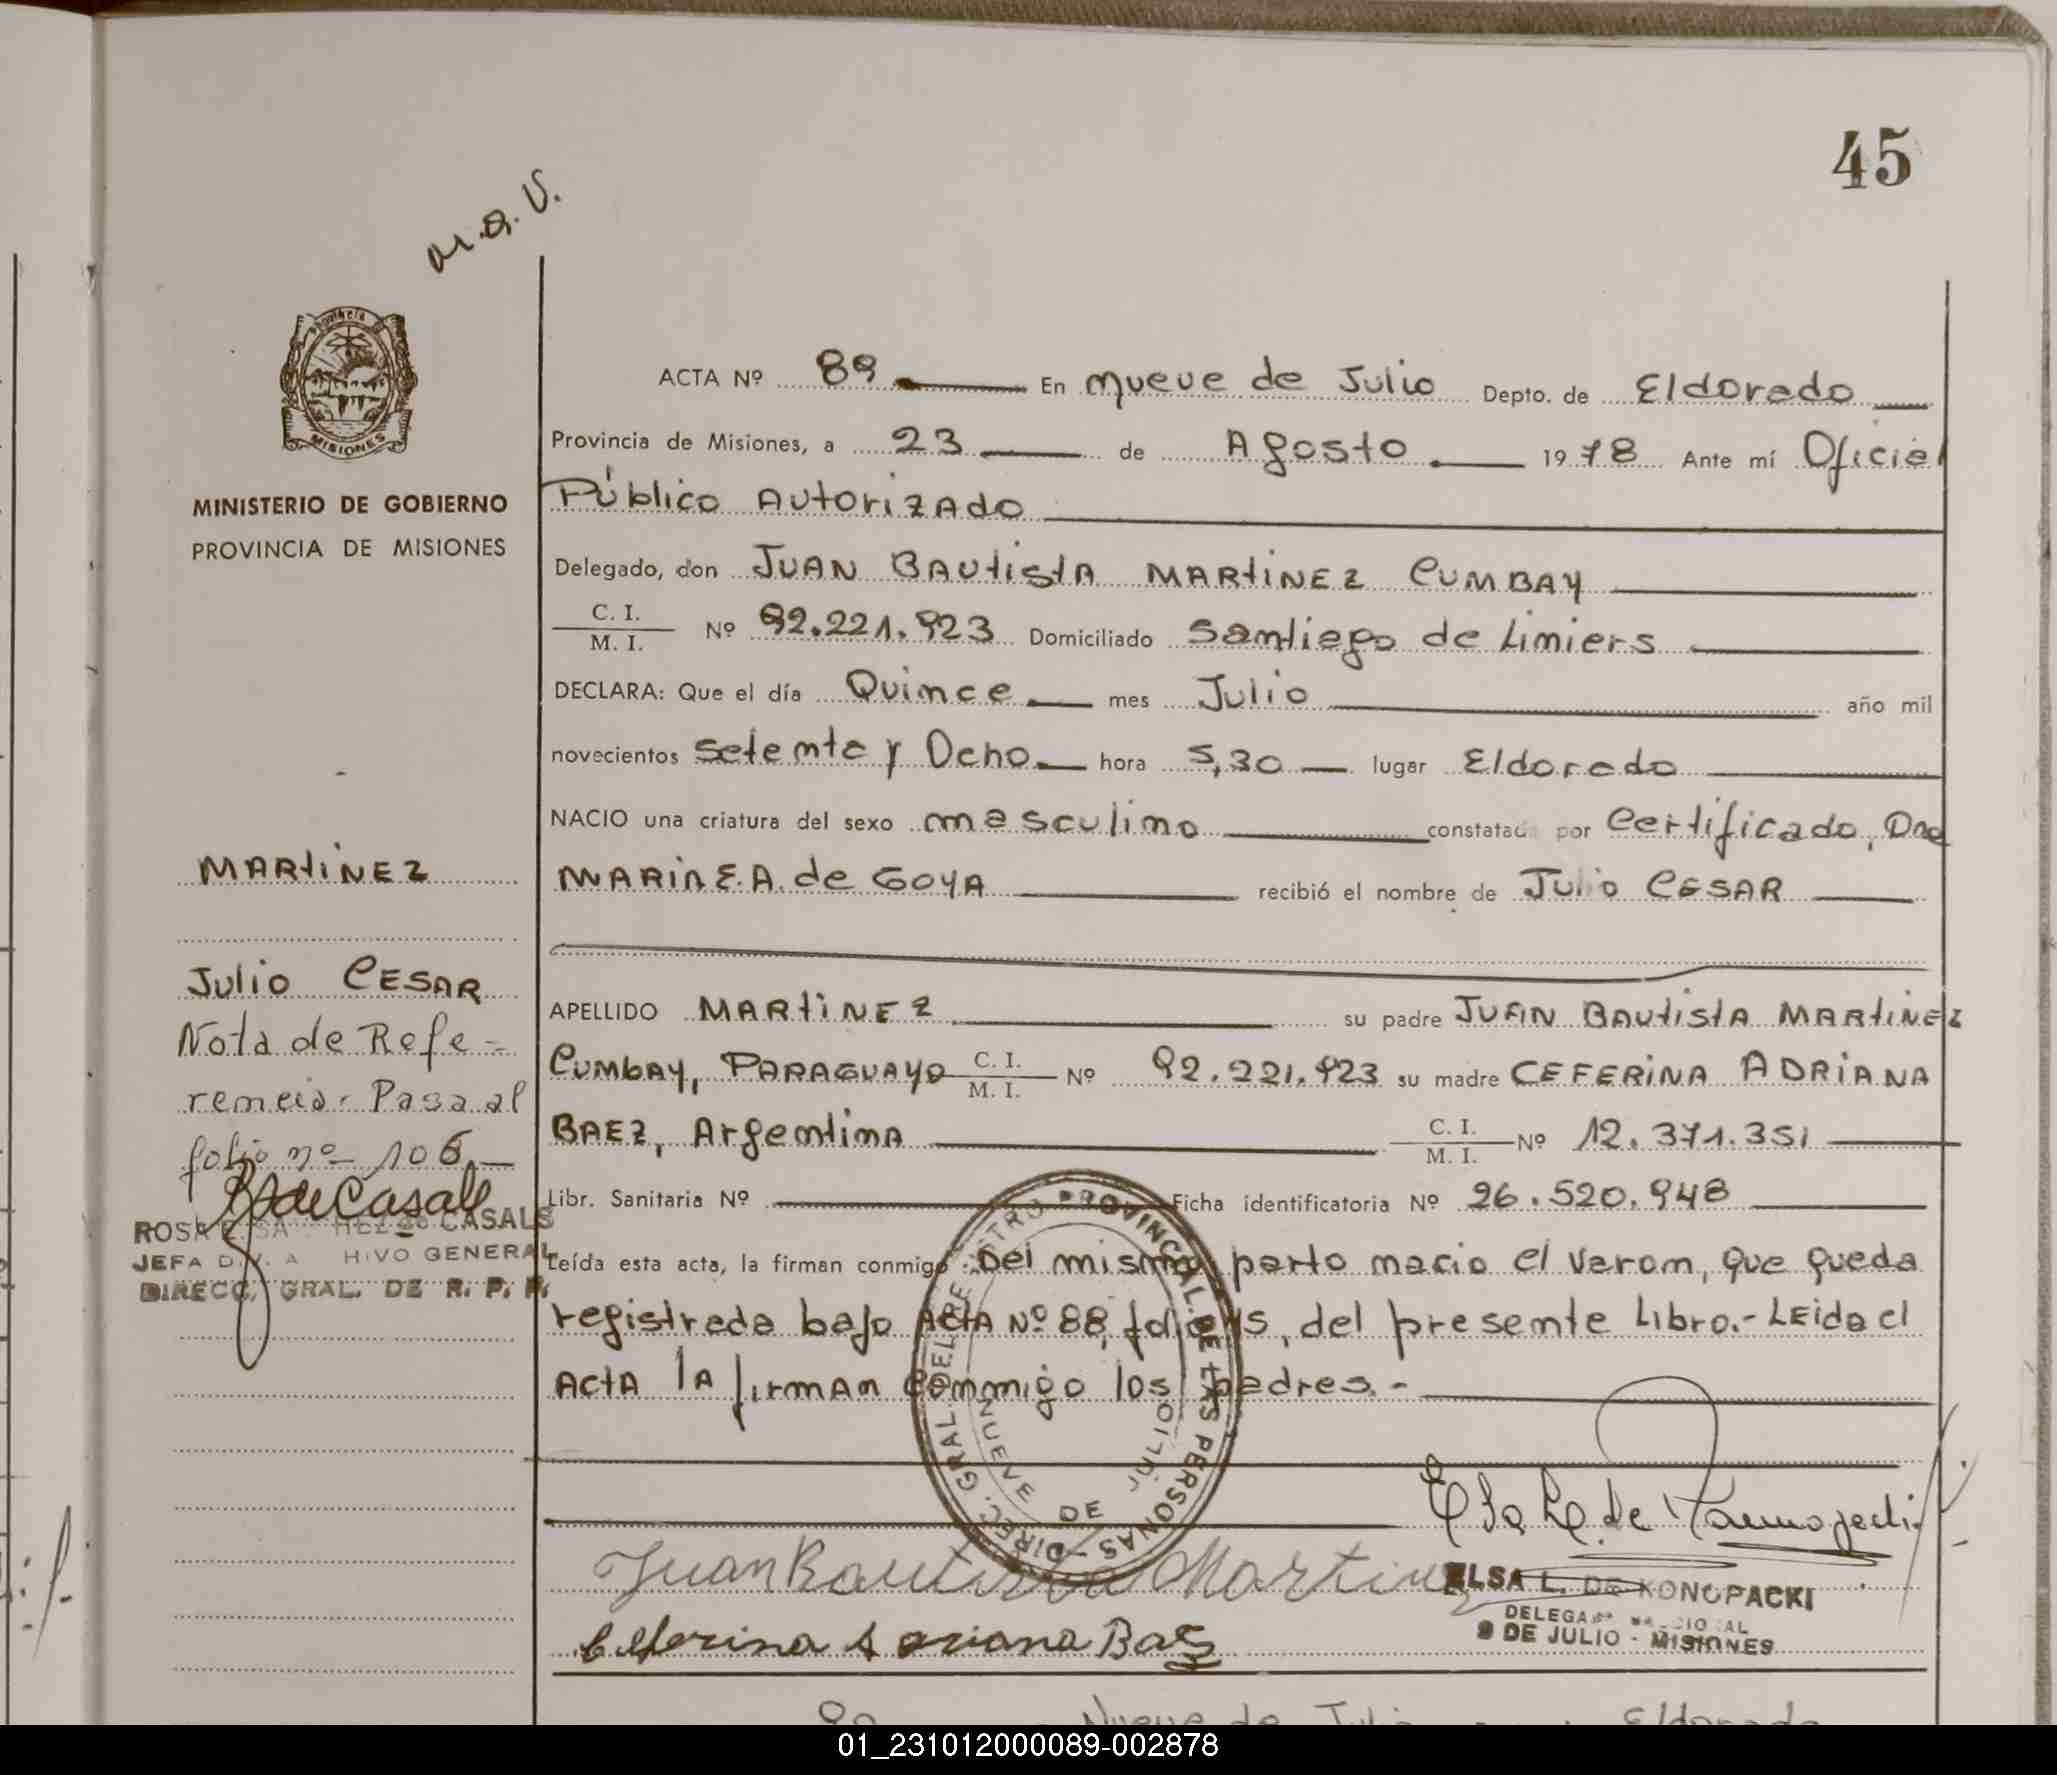 45
m.a.v.
MISIONES
MINISTERIO DE GOBIERNO
PROVINCIA DE MISIONES
ACTA Nº 89 En Nueve de Julio Depto. de Eldorado
Provincia de Misiones, a 23 de Agosto 1978 Ante mí Oficial
Público AUtoriZAdo
Delegado, don JUAN BAUtistA MARtiNEZ CUMBAY
C. I.
M. I. Nº 92.221.923 Domiciliado Santiago de Liniers
DECLARA: Que el día Quince mes Julio año mil
novecientos setenta y Ocho hora 5,30 lugar Eldorado
NACIO una criatura del sexo masculino constatada por Certificado, Dna
MARIA E.A. de GOYA recibió el nombre de Julio CESAR
APELLIDO MARtiNEZ su padre JUAN BAUtistA MARtiNEZ
CUMBAY, PARAGUAYO C. I. M. I. Nº 92.221.923 su madre CEFERINA ADRIANA
BAEZ, Argentina C. I. M. I. Nº 12.371.351
Libr. Sanitaria Nº Ficha identificatoria Nº 26.520.948
Leída esta acta, la firman conmigo Del mismo parto nacio el varon, que queda
registrado bajo ACtA Nº 88, folio 45, del presente Libro.- LEida el
ActA lA firmAn conmigo los padres.-
MARtiNEZ
Julio CESAR
Nota de Refe-
rencia. Pasa al
folio nº 106
ROSA ELSA CASALS
JEFA DIV. ARCHIVO GENERAL
DIRECC. GRAL. DE R. P. P.
DIREC. GRAL. DEL REGISTRO PROVINCIAL DE LAS PERSONAS
NUEVE DE JULIO
Juan Bautista Martinez
Ceferina Adriana Baez
ELSA L. DE KONOPACKI
DELEGADA
9 DE JULIO - MISIONES
Nueve de Julio Eldorado
01_231012000089-002878